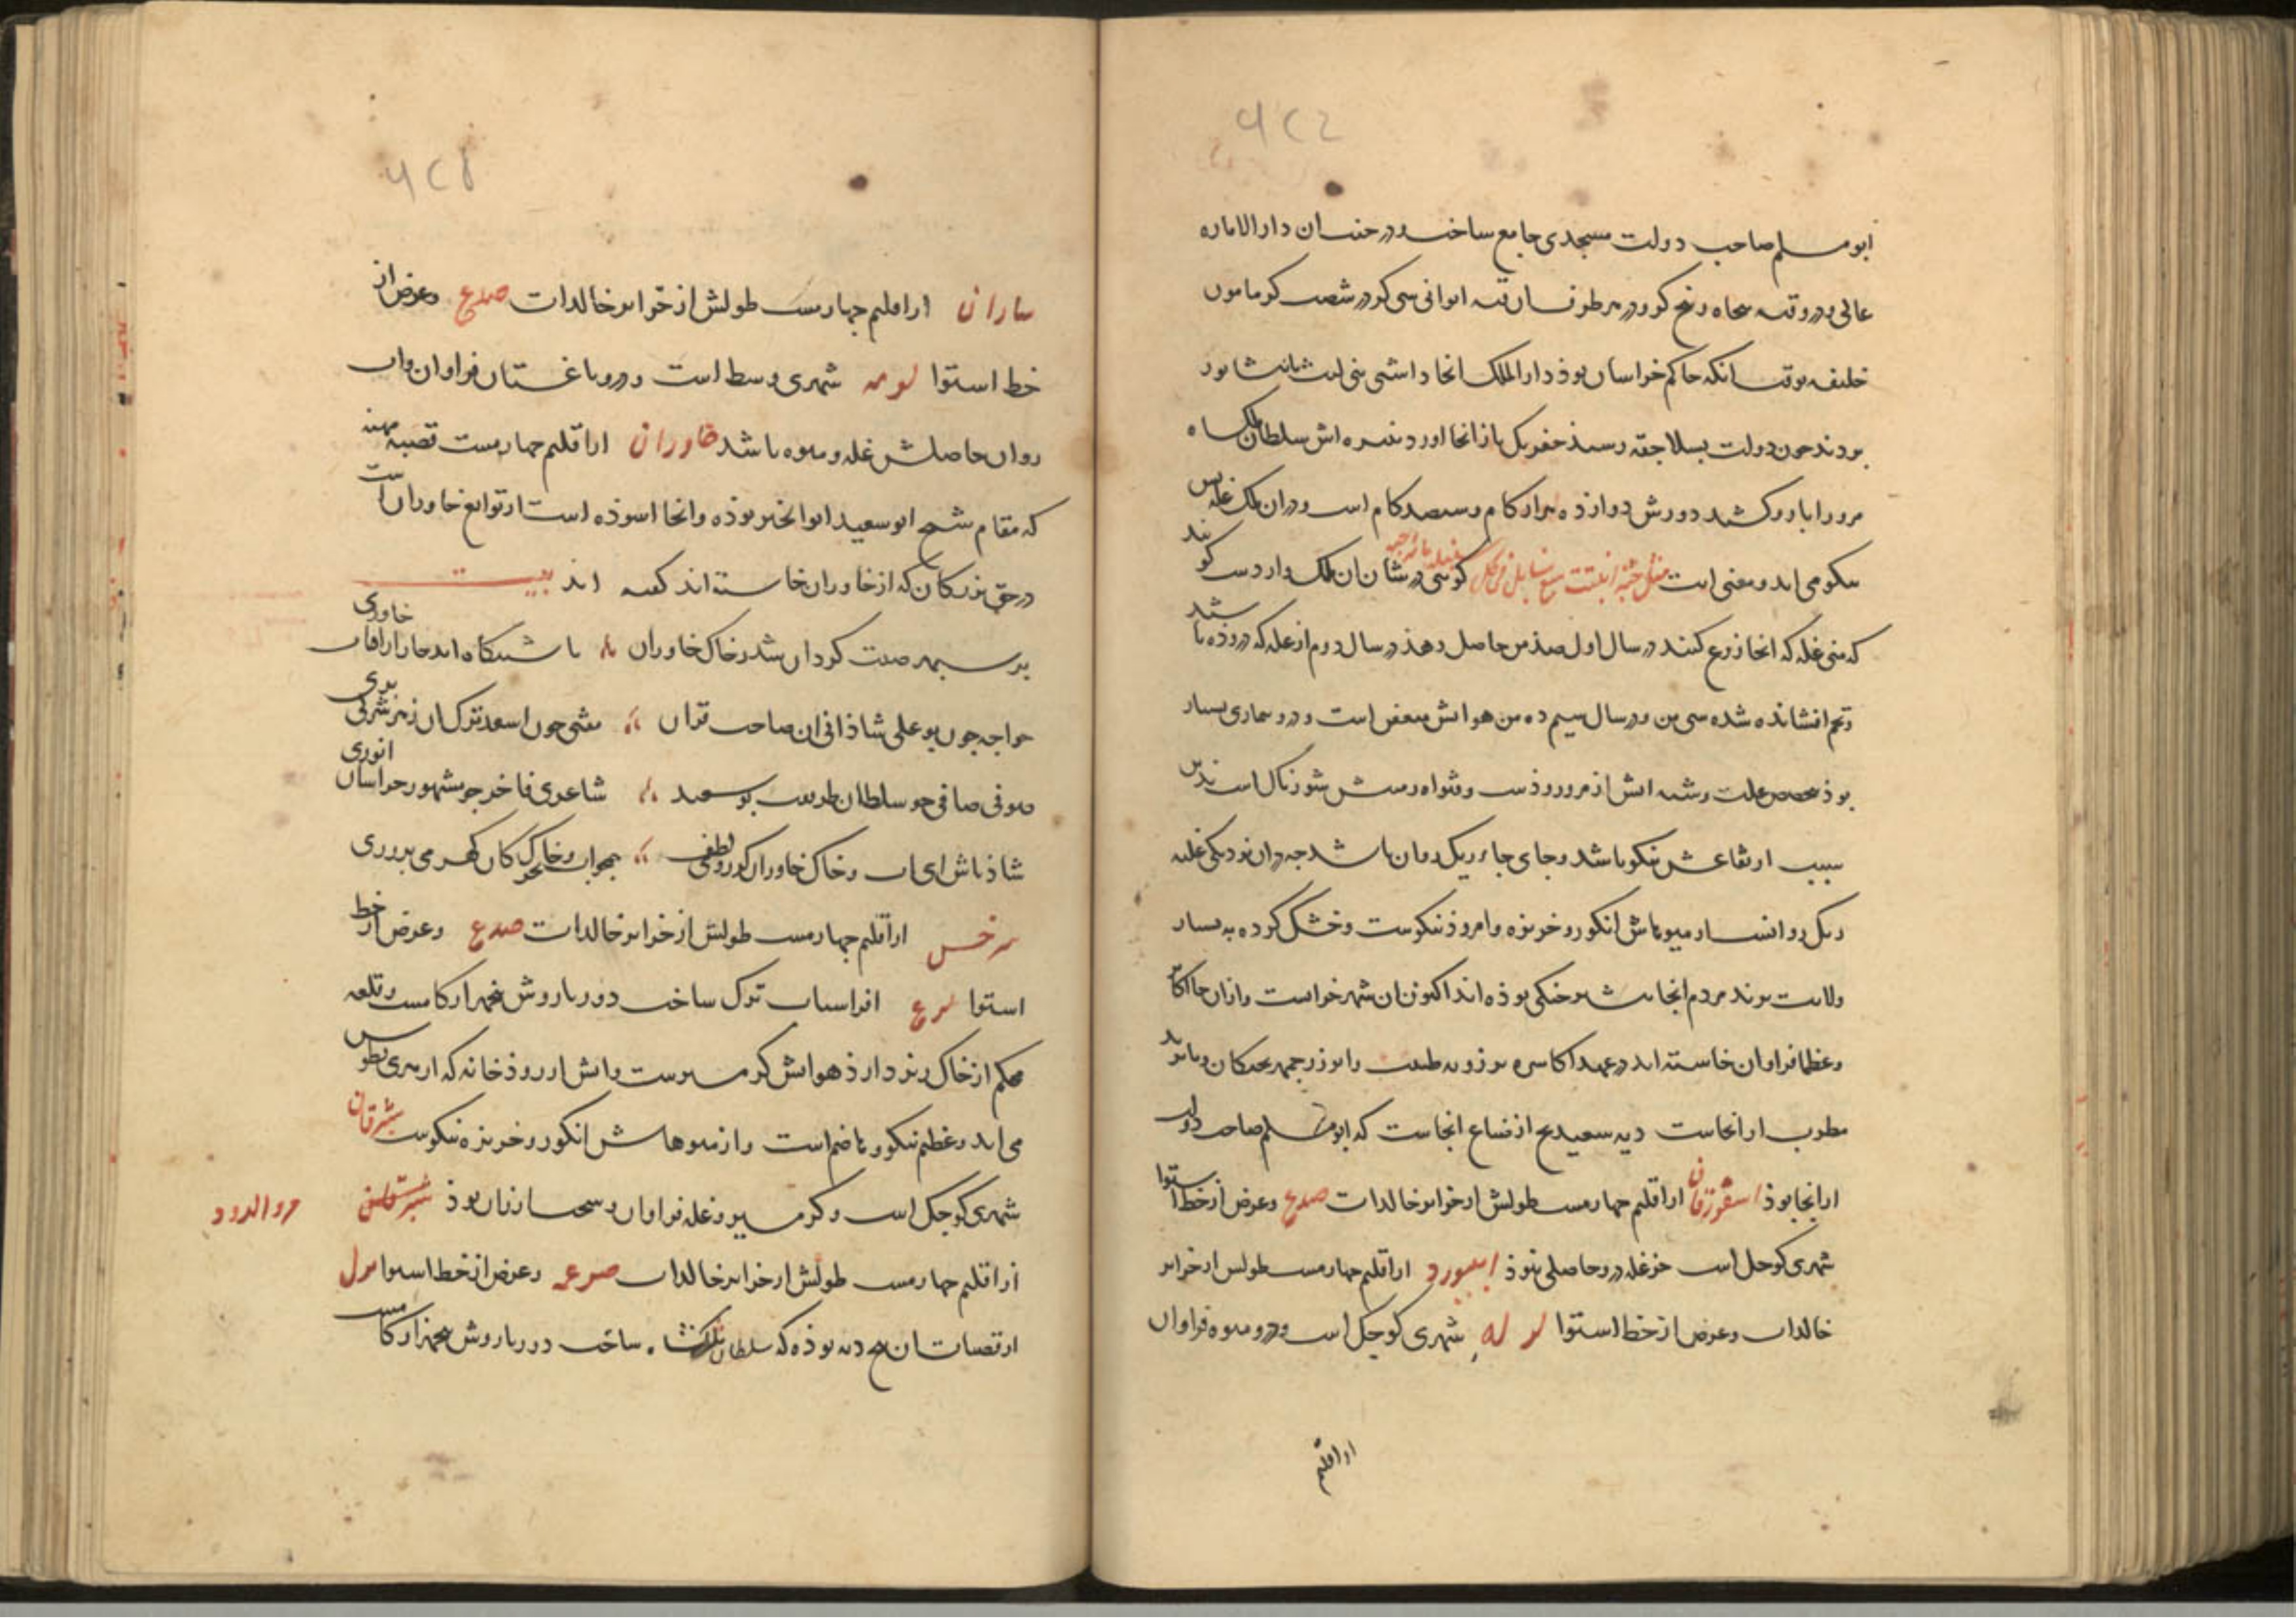 ابومسلم صاحب دولت مسجدی جامع ساخت و در جنب ان دار الاماره
عالی و درو قبه پنجاه و پنج کز و در هر طرف ان قبه ایوانی سی کز در شصت کز مامون
خلیفه بوقت انکه حاکم خراسان بوذ دار الملک انجا داشتی بنی لیث با نیشابور
بردند چون دولت بسلاجقه رسید جغربک باز انجا اورد نبیره اش سلطان ملکشاه
مرو را بارو کشید دورش دوازده هزار کام و سیصد کام است و در ان ملک غله بس
نیکو می اید و معنی ایت مثل حبة انبتت سبع سنابل فی کل سنبلة مائة حبة کویی در شان ان ملک وارد است کویند
که منی غله که انجا زرع کنند در سال اول صد من حاصل دهد در سال دوم از غله که دروذه باشند
و تخم افشانده شده سی من و در سال سیم ده من هوایش متعفن است و درو بیماری بسیار
بوذ بتخصیص علت رشته ابش از مرورود است
سبب ارتفاعش نیکو باشد و جای جای ریک روان باشد چه در ان نزدیکی غلبه
ریک روانست از میوهاش انکور و خربزه و امرود نیکوست و خشک کرده به بسیار
ولایت برند مردم انجا بیشتر جنکی بوذه اند اکنون ان شهر خرابست و از ان جا اکابر
و عظما فراوان خاسته اند در عهد اکاسره برزویه طبیب و ابوزرجمهر بختکان و باربد
مطرب از انجاست دیه سفیدنج از ضیاع انجاست که ابومسلم صاحب دولت
از انجا بوذ اسفوزقان از اقلیم چهارمست طولش از خزایر خالدات صدع و عرض از خط استوا
شهری کوچک است جز غله درو حاصلی نبوذ ابیورد از اقلیم چهارمست طولش از خزایر
خالدات و عرض از خط استوا لو له شهری کوچک است و درو میوه فراوان
از اقلیم
ساران از اقلیم چهارمست طولش از خزایر خالدات صدع و عرض از
خط استوا لو مه شهری وسط است و درو باغستان فراوان و اب
روان حاصلش غله و میوه باشد خاوران از اقلیم چهارمست قصبه مهنه
که مقام شیخ ابو سعید ابو الخیر بوذه و انجا اسوذه است از توابع خاوران است
در حق بزرکان که از خاوران خاسته اند کفته اند بیت
بر سپهر صیت کردان شد ز خاک خاوران تا شبانکاه امد چار افتاب خاوری
خواجه چون بوعلی شاذانی ان صاحب قران مفتی چون اسعد ترکان ز هر شر بری
صوفی صافی چو سلطان طریقت بوسعید شاعری فاخر چو مشهور خراسان انوری
شاذ باش ای اب و خاک خاوران کز روی لطف همچو اب بحر و خاک کان کهر می پروری
سرخس از اقلیم چهارمست طولش از خزایر خالدات صدع و عرض از خط
استوا لو ع افراسیاب ترک ساخت دور باروش پنجهزار کامست و قلعه
محکم از خاک ریز دارذ هوایش کرمسیرست و ابش از روذخانه که از هری بطوس
می اید و عظیم نیکو و هاضم است و از میوهاش انکور و خربزه نیکوست شبرقان
شهری کوچک است و کرمسیر و غله فراوان و سخت ارزان بوذ مرو الرود
از اقلیم چهارمست طولش از خزایر خالدات صرعه و عرض از خط استوا مرل
از قصبات ان پنج دیه بوذه که سلطان ملکشاه ساخت دور باروش پنجهزار کامست